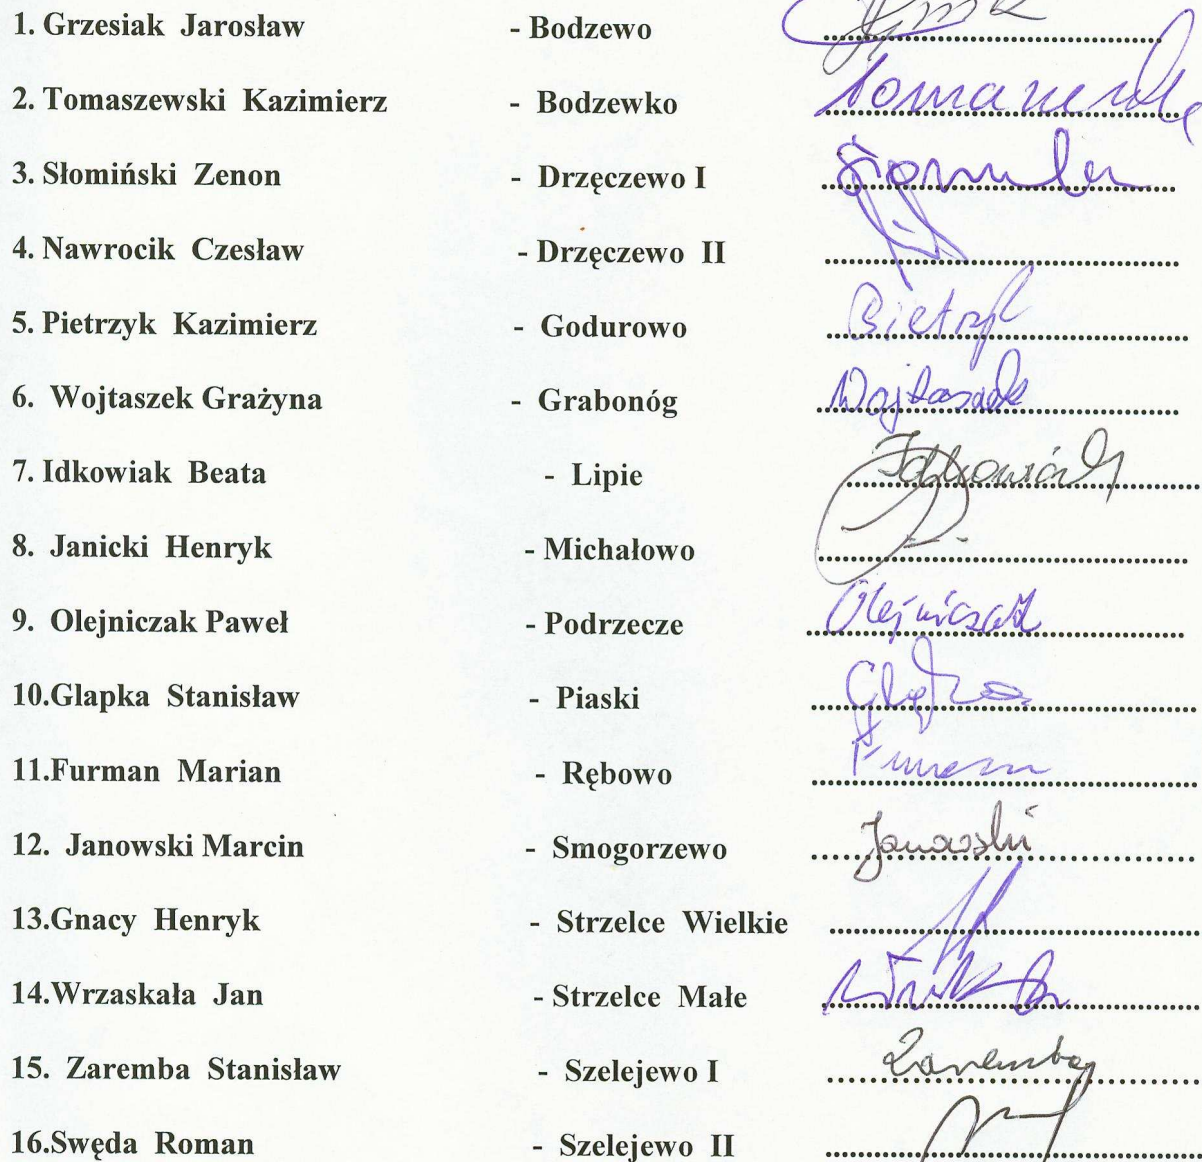 1. Grzesiak Jarosław - Bodzewo
2. Tomaszewski Kazimierz - Bodzewko
3. Słomiński Zenon - Drzęczewo I
4. Nawrocik Czesław - Drzęczewo II
5. Pietrzyk Kazimierz - Godurowo Pietrzyk
6. Wojtaszek Grażyna - Grabonóg Wojtaszek
7. Idkowiak Beata - Lipie Idkowiak
8. Janicki Henryk - Michałowo
9. Olejniczak Paweł - Podrzecze Olejniczak
10.Glapka Stanisław - Piaski Glapka
11.Furman Marian - Rębowo Furman
12. Janowski Marcin - Smogorzewo Janowski
13.Gnacy Henryk - Strzelce Wielkie
14.Wrzaskała Jan - Strzelce Małe
15. Zaremba Stanisław - Szelejewo I Zaremba
16.Swęda Roman - Szelejewo II